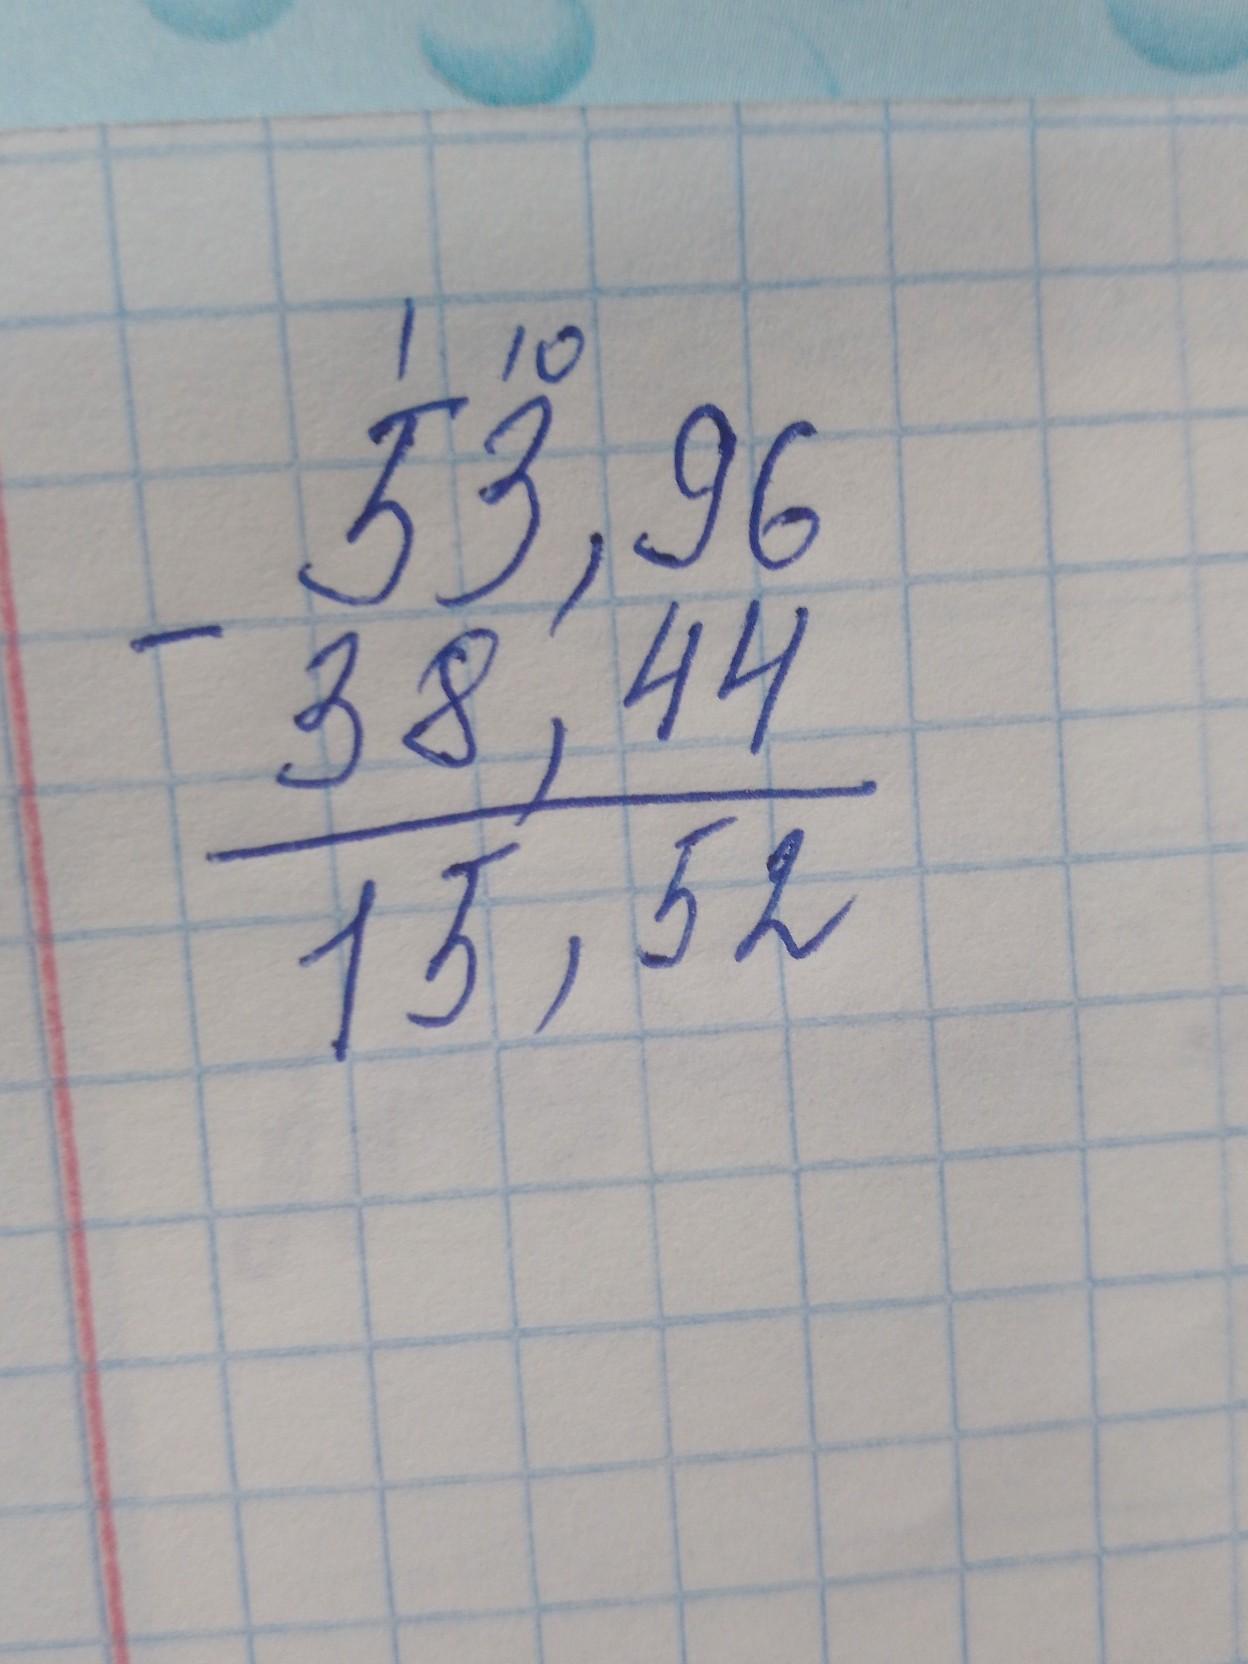 1 10
53,96
-
38,44
15,52